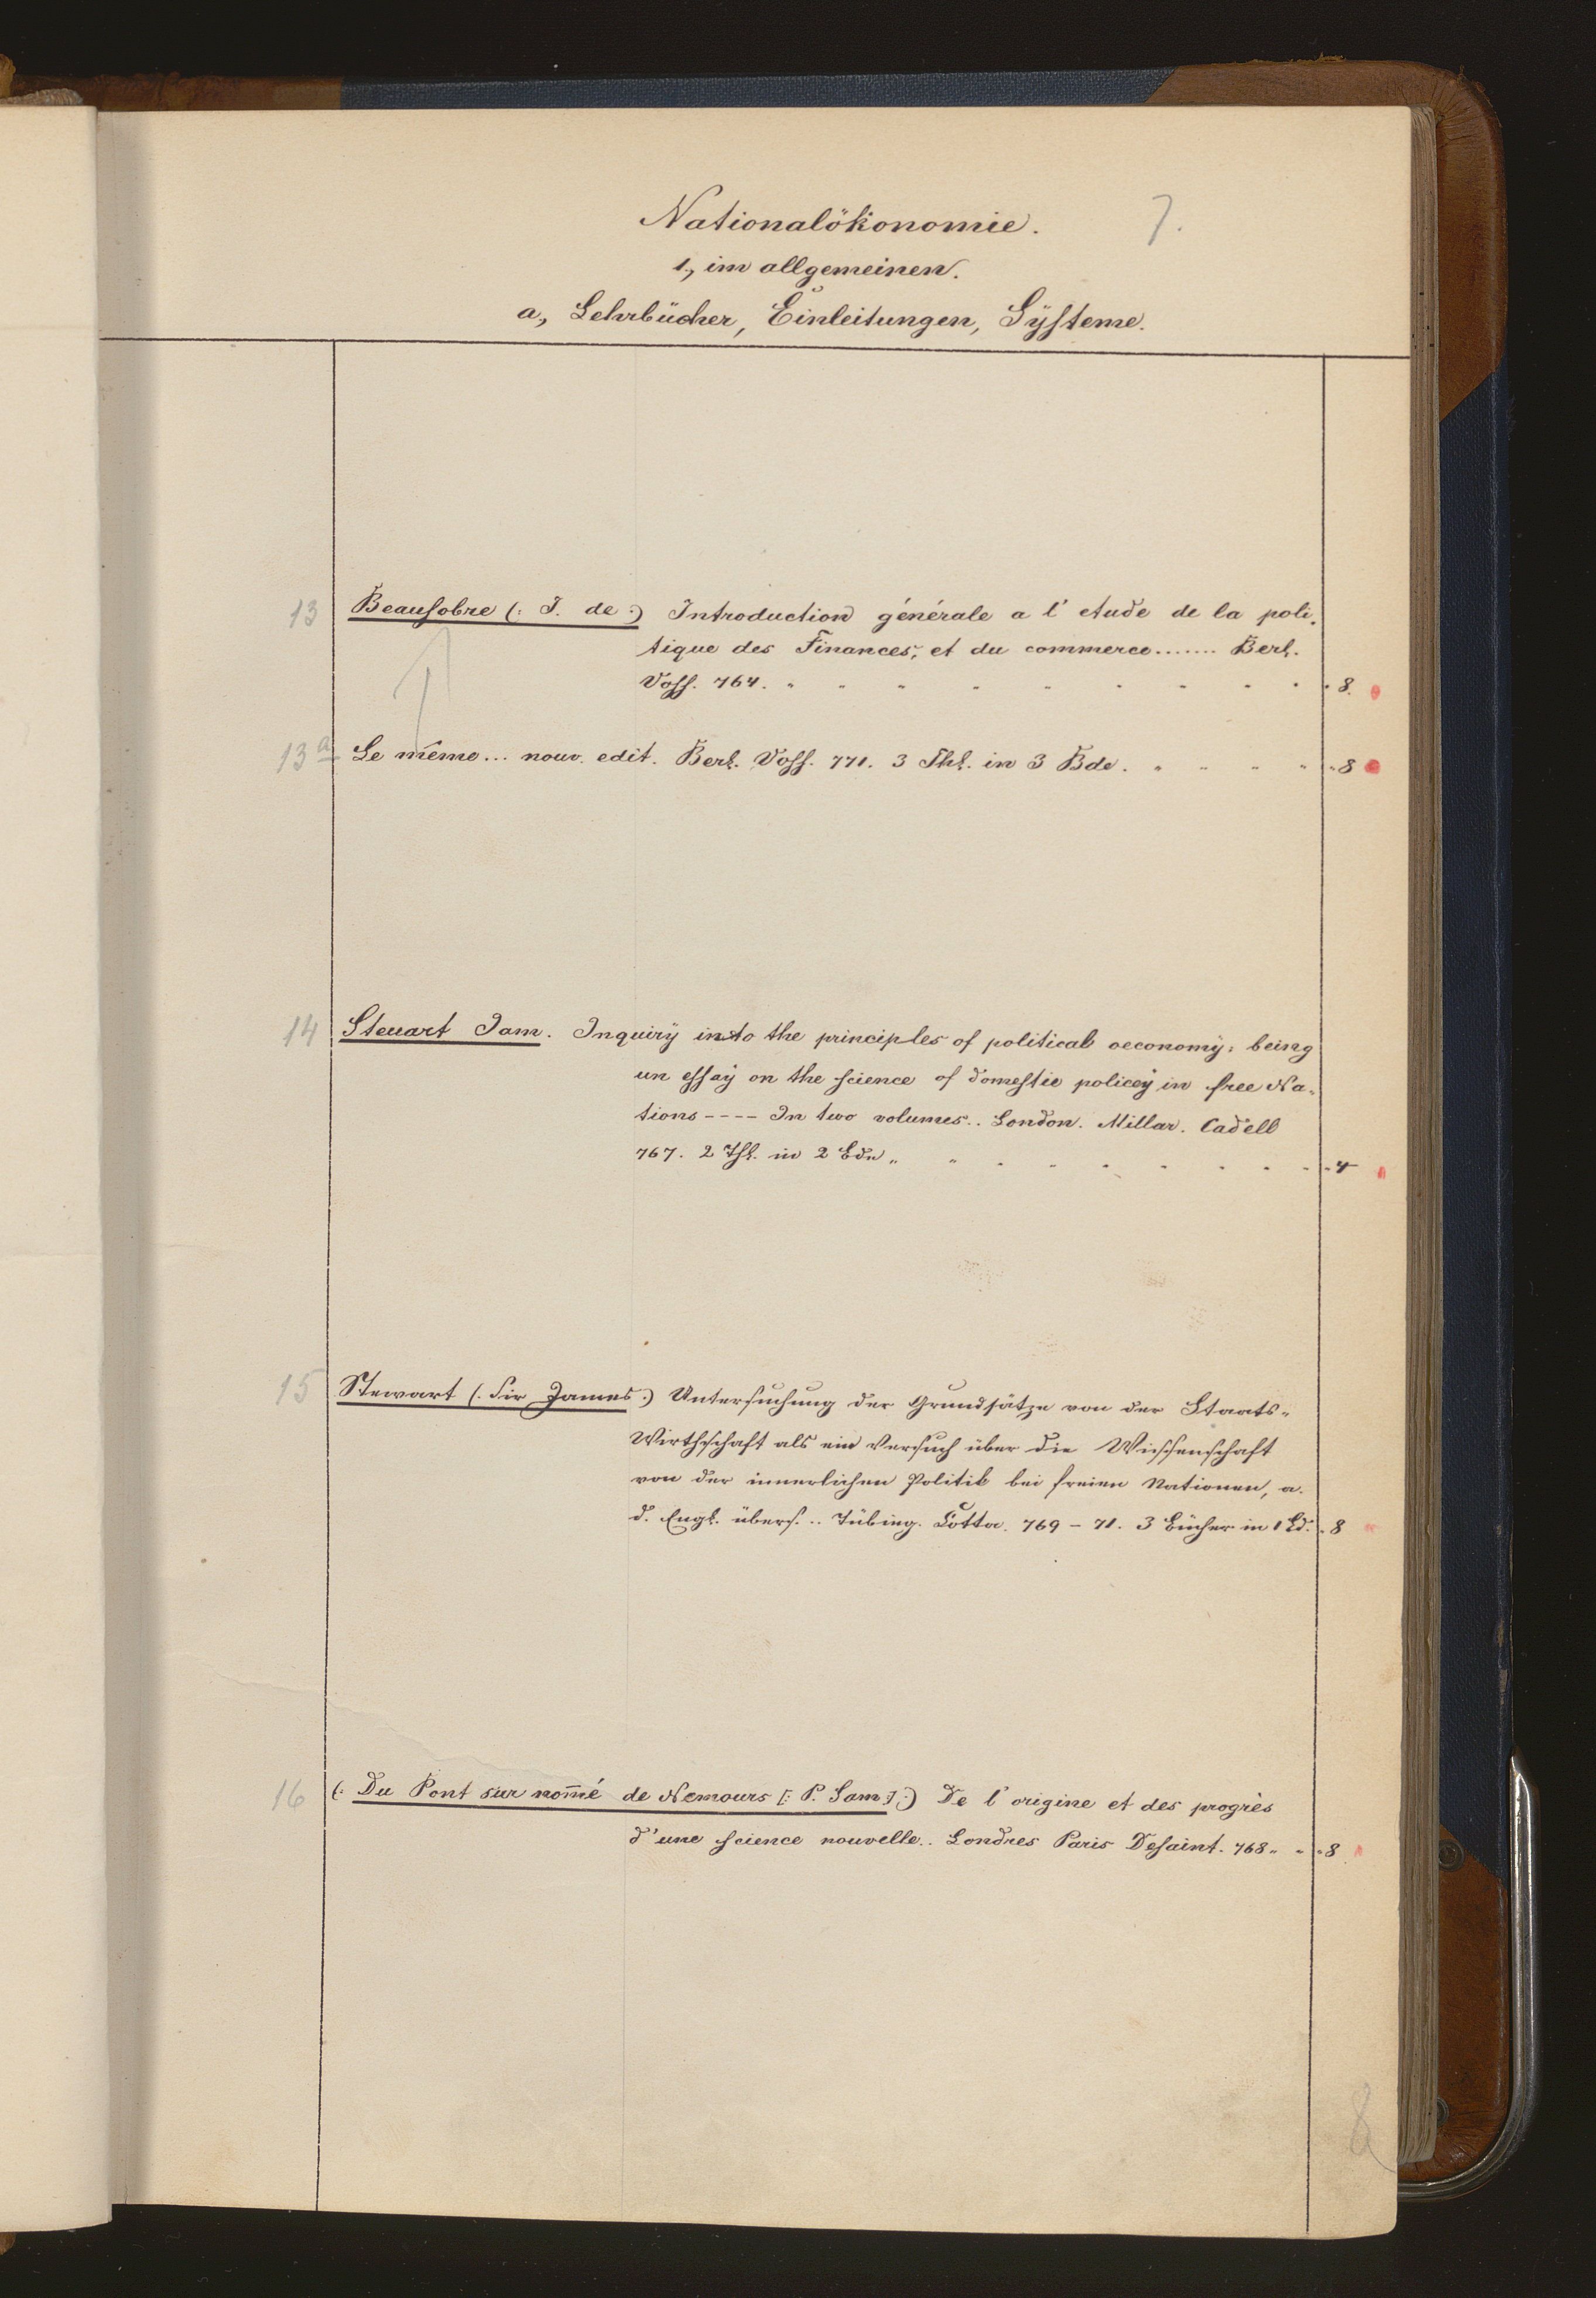 Nationalökonomie. 7.
1, im allgemeinen.
a, Lehrbücher, Einleitungen, Systeme.
13 Beausobre (: J. de :) Introduction générale a l' etude de la poli-
tique des Finances, et du commerce....... Berl.
Voss. 764. 8.
13a Le même... nouv. edit. Berl. Voss. 771. 3 Thl. in 3 Bde. 8
14 Steuart Jam. Inquiry into the principles of political oeconomy: being
un essay on the science of domestic policey in free Na-
tions ---- In two volumes.. London. Millar. Cadell
767. 2 Thl. in 2 Bdn 4
15 Stewart (: Sir James :) Untersuchung der Grundsätze von der Staats-
Wirthschaft als ein Versuch über die Wissenschaft
von der innerlichen Politik bei freien Nationen, a.
d. Engl. übers... Tübing. Cotta. 769 - 71. 3 Bücher in 1 Bd. 8
16 (: Du Pont sur nom̄é de Nemours [: P. Sam :] :) De l' origine et des progrès
d'une science nouvelle.. Londres Paris Desaint. 768. 8
8